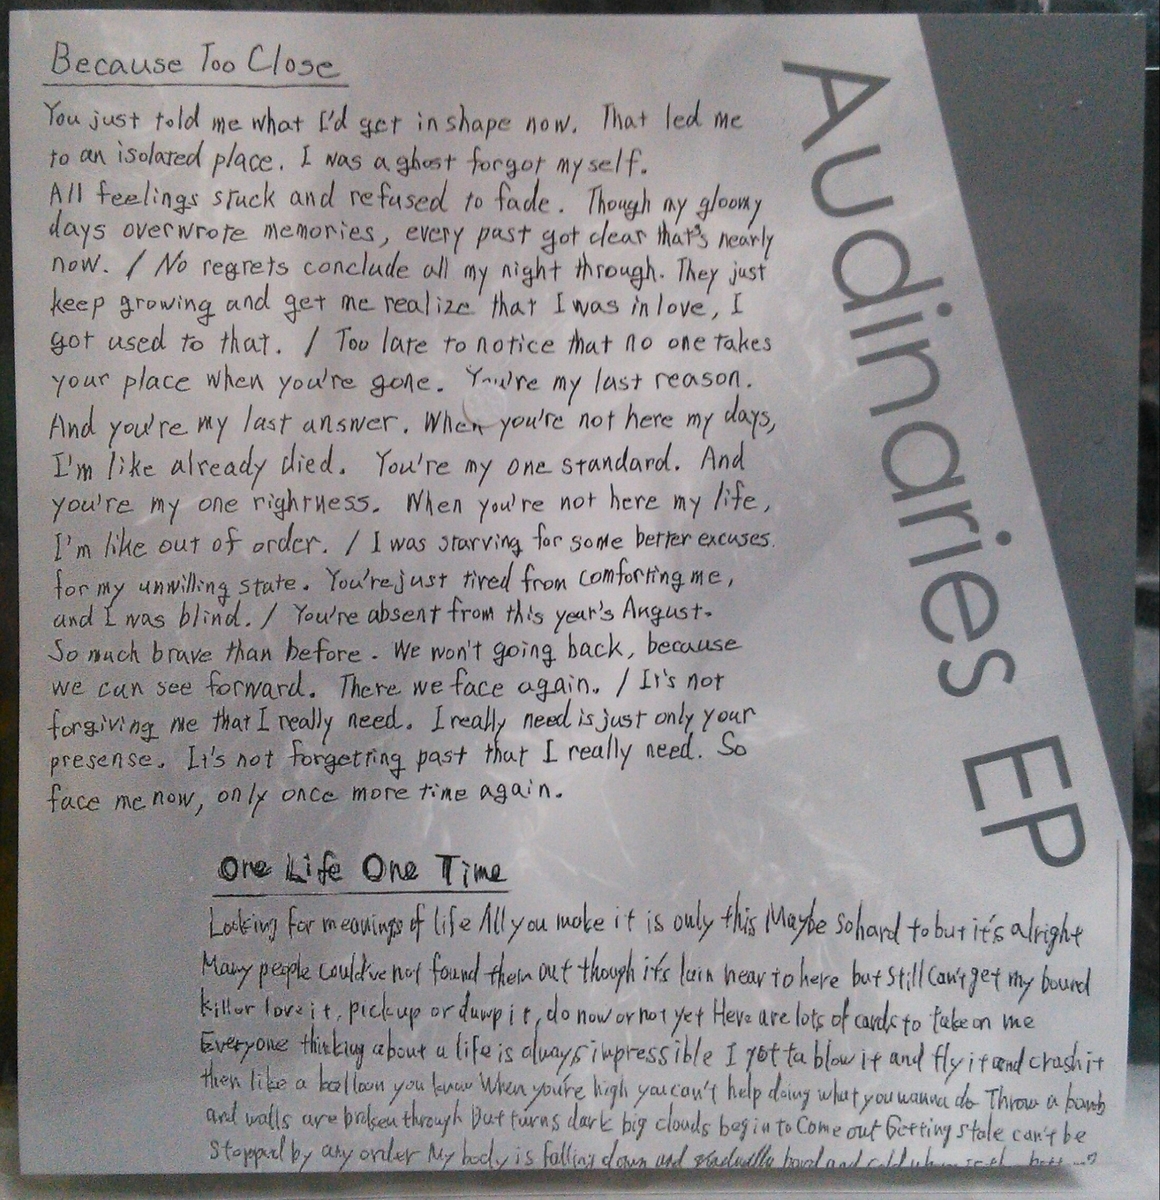 Because Too Close
You just told me what I'd get in shape now. That led me
to an isolated place. I was a ghost forgot my self.
All feelings stuck and refused to fade. Though my gloomy
days overwrote memories, every past got clear that's nearly
now. / No regrets conclude all my night through. They just
keep growing and get me realize that I was in love, I
got used to that. / Too late to notice that no one takes
your place when you're gone. You're my last reason.
And you're my last answer. When you're not here my days,
I'm like already died. You're my one standard. And
you're my one rightness. When you're not here my life,
I'm like out of order. / I was starving for some better excuses.
for my unwilling state. You're just tired from comforting me,
and I was blind. / You're absent from this year's August.
So much brave than before. We won't going back, because
we can see forward. There we face again. / It's not
forgiving me that I really need. I really need is just only your
presense. It's not forgetting past that I really need. So
face me now, only once more time again.
Audinaries EP
One Life One Time
Looking for meanings of life All you make it is only this Maybe So hard to but it's alright
Many people could've not found them out though it's lain near to here but still can't get my bound
kill or love it, pick up or dump it, do now or not yet Here are lots of cards to take on me
Everyone thinking about a life is always impressible I gotta blow it and fly it and crash it
then like a balloon you know When you're high you can't help doing what you wanna do Throw a bomb
and walls are broken through But turns dark big clouds begin to Come out Getting stale can't be
stopped by any order My body is falling down and gradually hard and cold